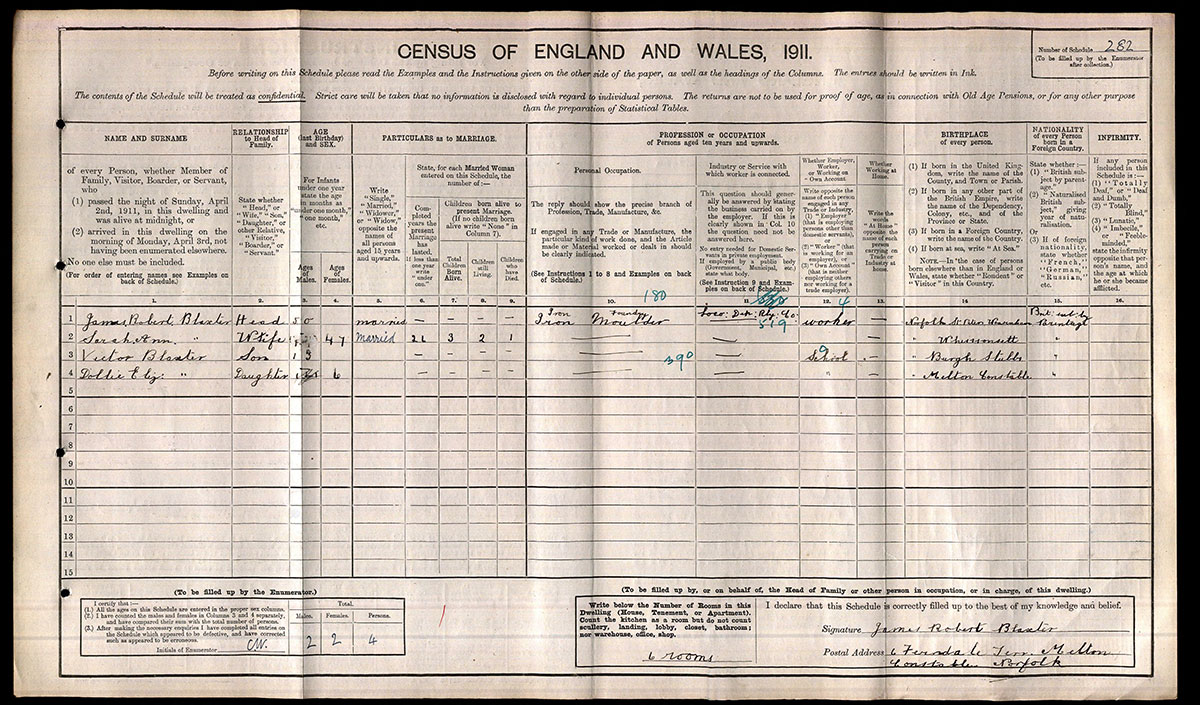 CENSUS OF ENGLAND AND WALES, 1911.
Number of Schedule 282
(To be filled up by the Enumerator
after collection.)
Before writing on this Schedule please read the Examples and the Instructions given on the other side of the paper, as well as the headings of the Columns. The entries should be written in Ink.
The contents of the Schedule will be treated as confidential. Strict care will be taken that no information is disclosed with regard to individual persons. The returns are not to be used for proof of age, as in connection with Old Age Pensions, or for any other purpose
than the preparation of Statistical Tables.
NAME AND SURNAME
of every Person, whether Member of
Family, Visitor, Boarder, or Servant,
who
(1) passed the night of Sunday, April
2nd, 1911, in this dwelling and
was alive at midnight, or
(2) arrived in this dwelling on the
morning of Monday, April 3rd, not
having been enumerated elsewhere.
No one else must be included.
(For order of entering names see Examples on
back of Schedule.)
RELATIONSHIP
to Head of
Family.
State whether
"Head," or
"Wife," "Son,"
"Daughter," or
other Relative,
"Visitor,"
"Boarder," or
"Servant."
AGE
(last Birthday)
and SEX.
For Infants
under one year
state the age
in months as
"under one month,"
"one month,"
etc.
Ages
of
Males.
Ages
of
Females.
PARTICULARS as to MARRIAGE.
Write
"Single,"
"Married,"
"Widower,"
or "Widow,"
opposite the
names of
all persons
aged 15 years
and upwards.
State, for each Married Woman
entered on this Schedule, the
number of:—
Completed
years the
present
Marriage
has
lasted.
If less than
one year
write
"under
one."
Children born alive to
present Marriage.
(If no children born
alive write "None" in
Column 7).
Total
Children
Born
Alive.
Children
still
Living.
Children
who
have
Died.
PROFESSION or OCCUPATION
of Persons aged ten years and upwards.
Personal Occupation.
The reply should show the precise branch of
Profession, Trade, Manufacture, &c.
If engaged in any Trade or Manufacture, the
particular kind of work done, and the Article
made or Material worked or dealt in should
be clearly indicated.
(See Instructions 1 to 8 and Examples on back
of Schedule.)
Industry or Service with
which worker is connected.
This question should generally
be answered by stating
the business carried on by
the employer. If this is
clearly shown in Col. 10
the question need not be
answered here.
No entry needed for Domestic Servants
in private employment.
If employed by a public body
(Government, Municipal, etc.)
state what body.
(See Instruction 9 and Examples
on back of Schedule.)
Whether Employer,
Worker,
or Working on
Own Account
Write opposite the
name of each person
engaged in any
Trade or Industry,
(1) "Employer" (that
is employing
persons other than
domestic servants),
or
(2) "Worker" (that
is working for an
employer), or
(3) "Own Account"
(that is neither
employing others
nor working for a
trade employer).
Whether
Working at
Home.
Write the
words
"At Home"
opposite the
name of
each person
carrying on
Trade or
Industry at
home.
BIRTHPLACE
of every person.
(1) If born in the United Kingdom,
write the name of the
County, and Town or Parish.
(2) If born in any other part of
the British Empire, write
the name of the Dependency,
Colony, etc., and of the
Province or State.
(3) If born in a Foreign Country,
write the name of the Country.
(4) If born at sea, write "At Sea."
NOTE.—In the case of persons
born elsewhere than in England or
Wales, state whether "Resident" or
"Visitor" in this Country.
NATIONALITY
of every Person
born in a
Foreign Country.
State whether:—
(1) "British subject
by parentage."
(2) "Naturalised
British subject,"
giving
year of naturalisation.
Or
(3) If of foreign
nationality,
state whether
"French,"
"German,"
"Russian,"
etc.
INFIRMITY.
If any person
included in this
Schedule is:—
(1) "Totally
Deaf," or "Deaf
and Dumb,"
(2) "Totally
Blind,"
(3) "Lunatic,"
(4) "Imbecile,"
or "Feeble-minded,"
state the infirmity
opposite that person's
name, and
the age at which
he or she became
afflicted.
1. 2. 3. 4. 5. 6. 7. 8. 9. 10. 11. 12. 13. 14 15. 16.
180 4
1 James Robert Blaxter Head 50 married — — — — Iron Moulder Loco: Rly: Co: 519 worker — Norfolk
2 Sarah Ann " Wife 47 Married 3 2 1 — — — " Whissonsett "
3 Victor Blaxter Son 13 — — — — 390 School — " Burgh "
4 Dollie Eliz: " Daughter 6 — — — — " — " Melton Constable "
5
6
7
8
9
10
11
12
13
14
15
(To be filled up by the Enumerator.)
I certify that:—
(1.) All the ages on this Schedule are entered in the proper sex columns.
(2.) I have counted the males and females in Columns 3 and 4 separately,
and have compared their sum with the total number of persons.
(3.) After making the necessary enquiries I have completed all entries on
the Schedule which appeared to be defective, and have corrected
such as appeared to be erroneous.
Initials of Enumerator
Total.
Males. Females. Persons.
2 2 4
(To be filled up by, or on behalf of, the Head of Family or other person in occupation, or in charge, of this dwelling.)
Write below the Number of Rooms in this
Dwelling (House, Tenement, or Apartment).
Count the kitchen as a room but do not count
scullery, landing, lobby, closet, bathroom;
nor warehouse, office, shop.
6 rooms
I declare that this Schedule is correctly filled up to the best of my knowledge and belief.
Signature James Robert Blaxter
Postal Address 6 Ferndale Terr. Melton
Constable Norfolk